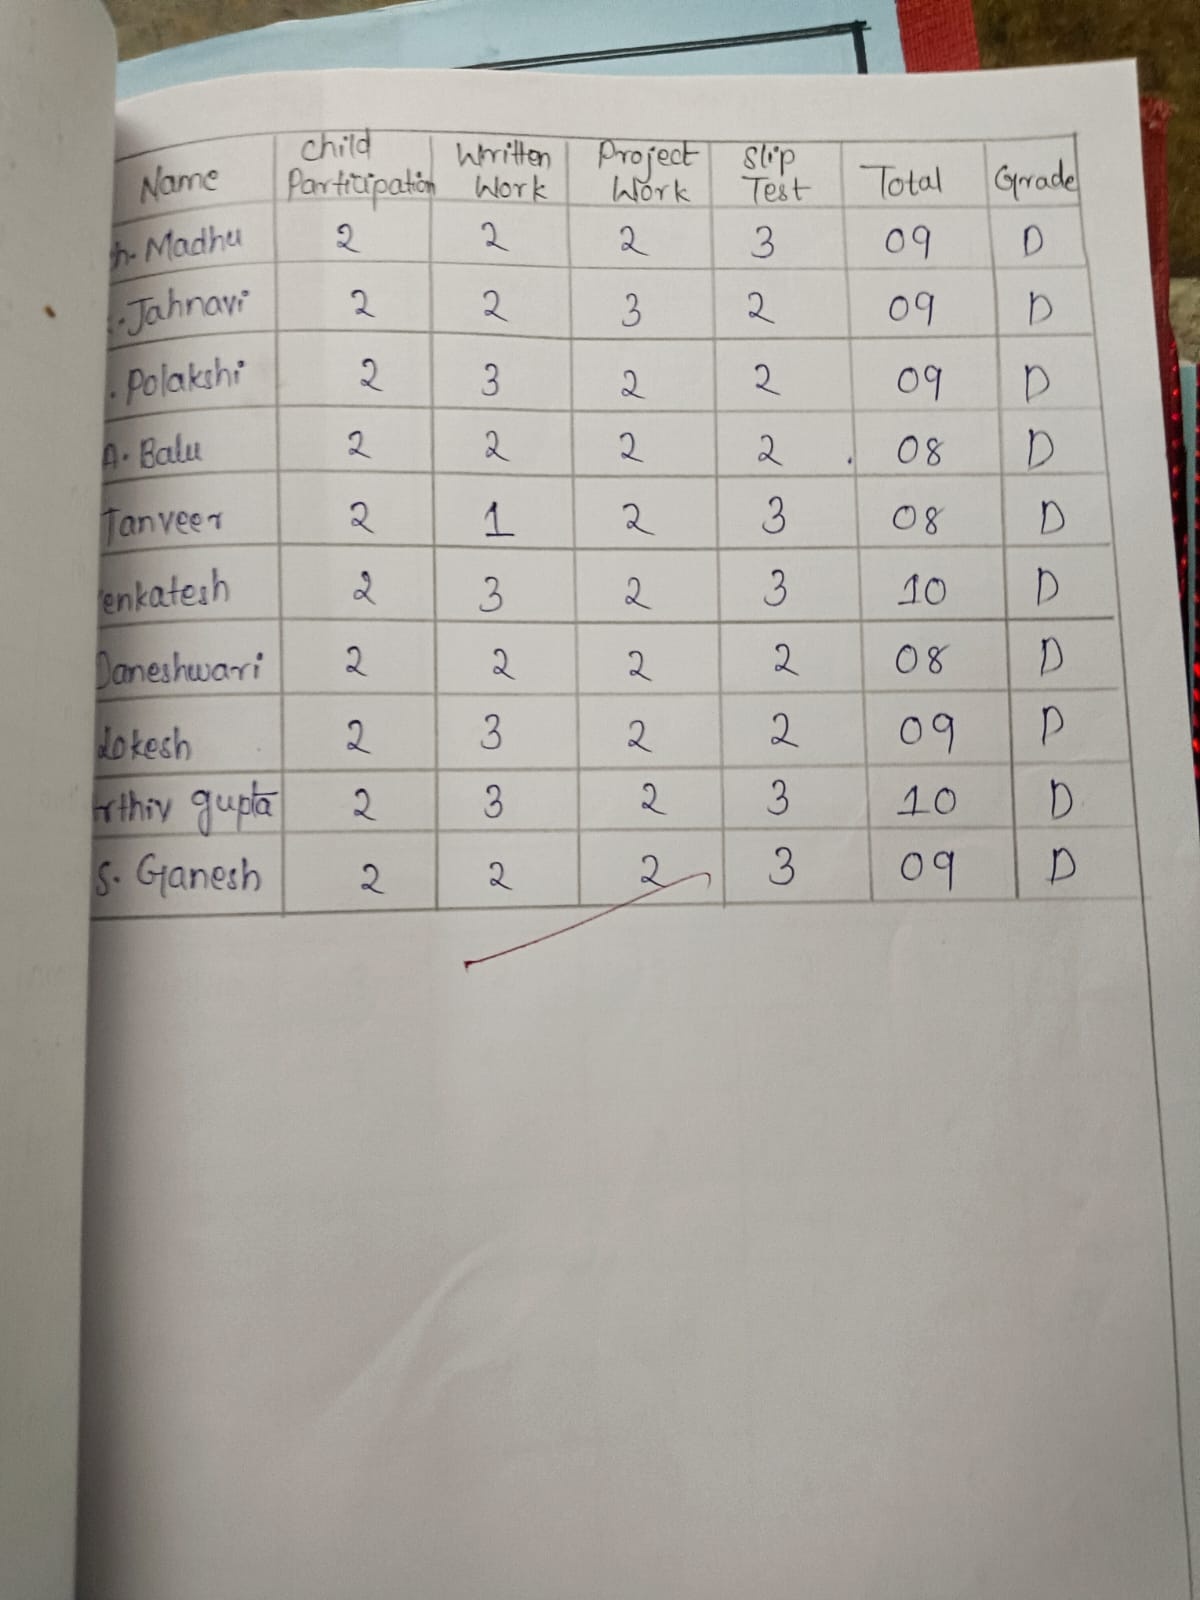 Name Child Participation Written Work Project Work Slip Test Total Grade
h. Madhu 2 2 2 3 09 D
. Jahnavi 2 2 3 2 09 D
. Polakshi 2 3 2 2 09 D
A. Balu 2 2 2 2 08 D
Tanveer 2 1 2 3 08 D
enkatesh 2 3 2 3 10 D
Daneshwari 2 2 2 2 08 D
Lokesh 2 3 2 2 09 D
rthiv gupta 2 3 2 3 10 D
S. Ganesh 2 2 2 3 09 D